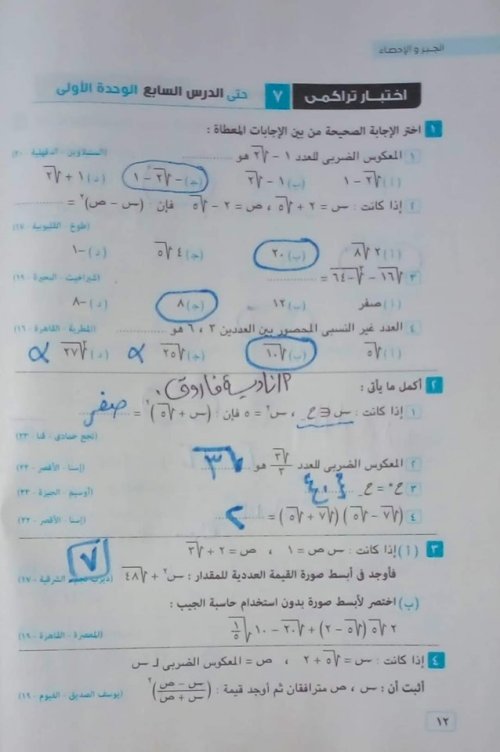 الجبر والإحصاء
اختبار تراكمى ٧ حتى الدرس السابع الوحدة الأولى
١ اختر الإجابة الصحيحة من بين الإجابات المعطاة :
١ المعكوس الضربى للعدد ١ − √٢ هو ............
(أ) √٢ − ١ (ب) ١ − √٢ (جـ) − √٢ − ١ (د) ١ + √٢
٢ إذا كانت : س = ٢ + √٥ ، ص = ٢ − √٥ فإن : (س − ص)٢ = ............
(طوخ - القليوبية ١٧)
(أ) ٢ √٨ (ب) ٢٠ (جـ) ٤ √٥ (د) −١
٣ √١٦ − ∛−٦٤ = ............ (شبراخيت - البحيرة ١٩)
(أ) صفر (ب) ١٢ (جـ) ٨ (د) −٨
٤ العدد غير النسبى المحصور بين العددين ٣ ، ٦ هو ............ (المطرية - القاهرة ١٦)
(أ) √٥ (ب) √١٠ (جـ) √٢٥ (د) ∛٢٧
٢ أكمل ما يأتى :
أ/نادية فاروق
١ إذا كانت : س ∈ ح− ، س٢ = ٥ فإن : (س + √٥)٢ = صفر
(نجع حمادى - قنا ٢٣)
٢ المعكوس الضربى للعدد √٣/٣ هو √٣ (إسنا - الأقصر ٢٣)
٣ ح* = ح − {٠} (أوسيم - الجيزة ٢٣)
٤ (√٧ − √٥) (√٧ + √٥) = ٢ (إسنا - الأقصر ٢٢)
٣ (أ) إذا كانت : س ص = ١ ، ص = ٢ + √٣ ٧
فأوجد فى أبسط صورة القيمة العددية للمقدار : س٢ + √٤٨ (ديرب نجم - الشرقية ١٧)
(ب) اختصر لأبسط صورة بدون استخدام حاسبة الجيب :
٢ √٥ (√٥ − ٢) + √٢٠ − ١٠ √١/٥ (المعصرة - القاهرة ١٩)
٤ إذا كانت : س = √٥ + ٢ ، ص = المعكوس الضربى لـ س
أثبت أن : س ، ص مترافقان ثم أوجد قيمة : (س − ص/س + ص)٢ (يوسف الصديق - الفيوم ١٩)
١٢